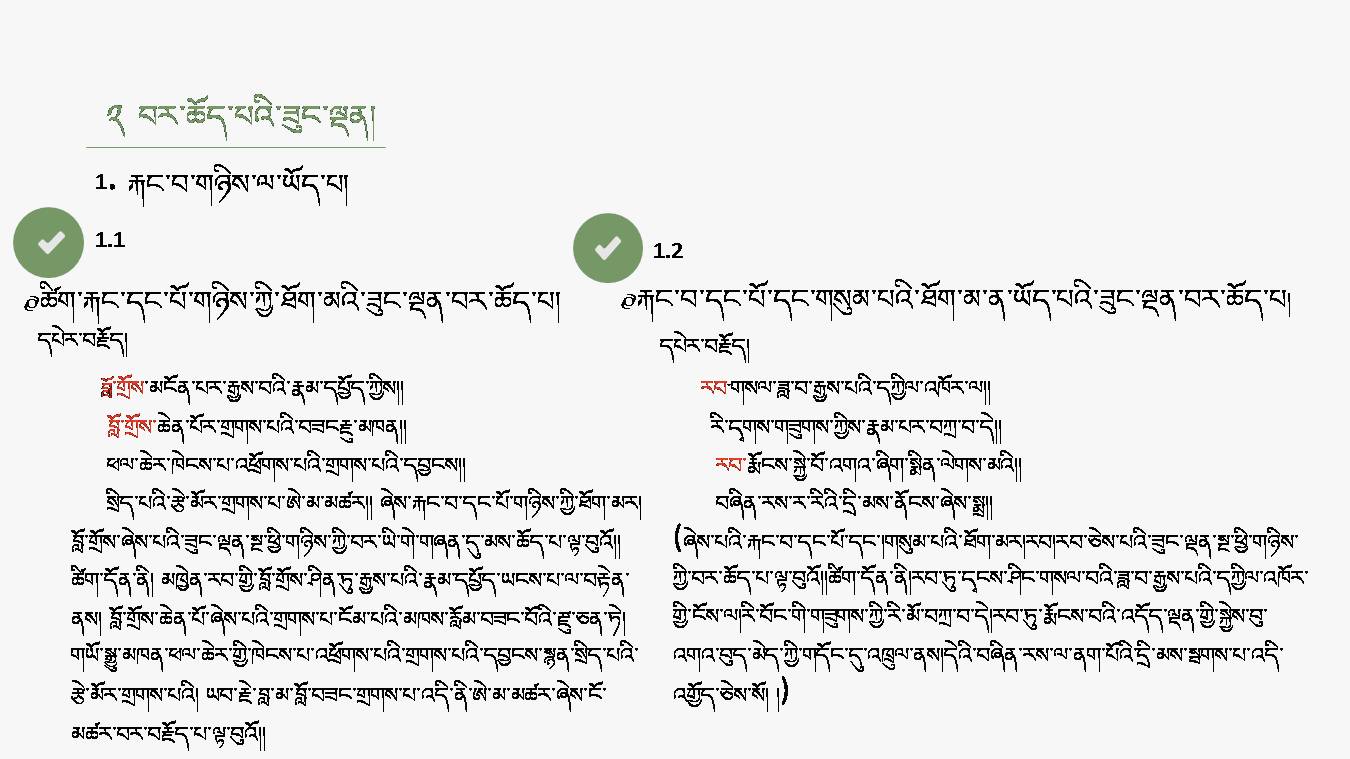 ༢ བར་ཆོད་པའི་ཟུང་ལྡན།
1. རྐང་བ་གཉིས་ལ་ཡོད་པ།
1.1
ཚིག་རྐང་དང་པོ་གཉིས་ཀྱི་ཐོག་མའི་ཟུང་ལྡན་བར་ཆོད་པ།
དཔེར་བརྗོད།
བློ་གྲོས་མངོན་པར་རྒྱས་བའི་རྣམ་དཔྱོད་ཀྱིས།།
བློ་གྲོས་ཆེན་པོར་གྲགས་པའི་བཟང་རྫུ་མཁན།།
ཕལ་ཆེར་ཁེངས་པ་འཕྲོགས་པའི་གྲགས་པའི་དབྱངས།།
སྲིད་པའི་རྩེ་མོར་གྲགས་པ་ཨེ་མ་མཚར།། ཞེས་རྐང་བ་དང་པོ་གཉིས་ཀྱི་ཐོག་མར།
བློ་གྲོས་ཞེས་པའི་ཟུང་ལྡན་སྔ་ཕྱི་གཉིས་ཀྱི་བར་ཡི་གེ་གཞན་དུ་མས་ཆོད་པ་ལྟ་བུའོ།།
ཚིག་དོན་ནི། མཁྱེན་རབ་ཀྱི་བློ་གྲོས་ཤིན་ཏུ་རྒྱས་པའི་རྣམ་དཔྱོད་ཡངས་པ་ལ་བརྟེན་
ནས། བློ་གྲོས་ཆེན་པོ་ཞེས་པའི་གྲགས་པ་ངོམ་པའི་མཁས་རློམ་བཟང་པོའི་རྫུ་ཅན་ཏེ།
གཡོ་སྒྱུ་མཁན་ཕལ་ཆེར་གྱི་ཁེངས་པ་འཕྲོགས་པའི་གྲགས་པའི་དབྱངས་སྙན་སྲིད་པའི་
རྩེ་མོར་གྲགས་པའི། ཡབ་རྗེ་བླ་མ་བློ་བཟང་གྲགས་པ་འདི་ནི་ཨེ་མ་མཚར་ཞེས་ངོ་
མཚར་བར་བརྗོད་པ་ལྟ་བུའོ།།
1.2
རྐང་བ་དང་པོ་དང་གསུམ་པའི་ཐོག་མ་ན་ཡོད་པའི་ཟུང་ལྡན་བར་ཆོད་པ།
དཔེར་བརྗོད།
རབ་གསལ་ཟླ་བ་རྒྱས་པའི་དཀྱིལ་འཁོར་ལ།།
རི་དྭགས་གཟུགས་ཀྱིས་རྣམ་པར་བཀྲ་བ་དེ།།
རབ་རྨོངས་སྐྱེ་བོ་འགའ་ཞིག་སྨིན་ལེགས་མའི།།
བཞིན་རས་ར་རིའི་དྲི་མས་ནོངས་ཞེས་སྨྲ།།
(ཞེས་པའི་རྐང་བ་དང་པོ་དང་།གསུམ་པའི་ཐོག་མར།རབ།རབ་ཅེས་པའི་ཟུང་ལྡན་སྔ་ཕྱི་གཉིས་
ཀྱི་བར་ཆོད་པ་ལྟ་བུའོ།།ཚིག་དོན་ནི།རབ་ཏུ་དྭངས་ཤིང་གསལ་བའི་ཟླ་བ་རྒྱས་པའི་དཀྱིལ་འཁོར་
གྱི་ངོས་ལ།རི་བོང་གི་གཟུགས་ཀྱི་རི་མོ་བཀྲ་བ་དེ།རབ་ཏུ་རྨོངས་བའི་འདོད་ལྡན་གྱི་སྐྱེས་བུ་
འགའ་བུད་མེད་ཀྱི་གདོང་དུ་འཁྲུལ་ནས།དེའི་བཞིན་རས་ལ་ནག་པོའི་དྲི་མས་སྦགས་པ་འདི་
འགྱོད་ཅེས་སོ། །)